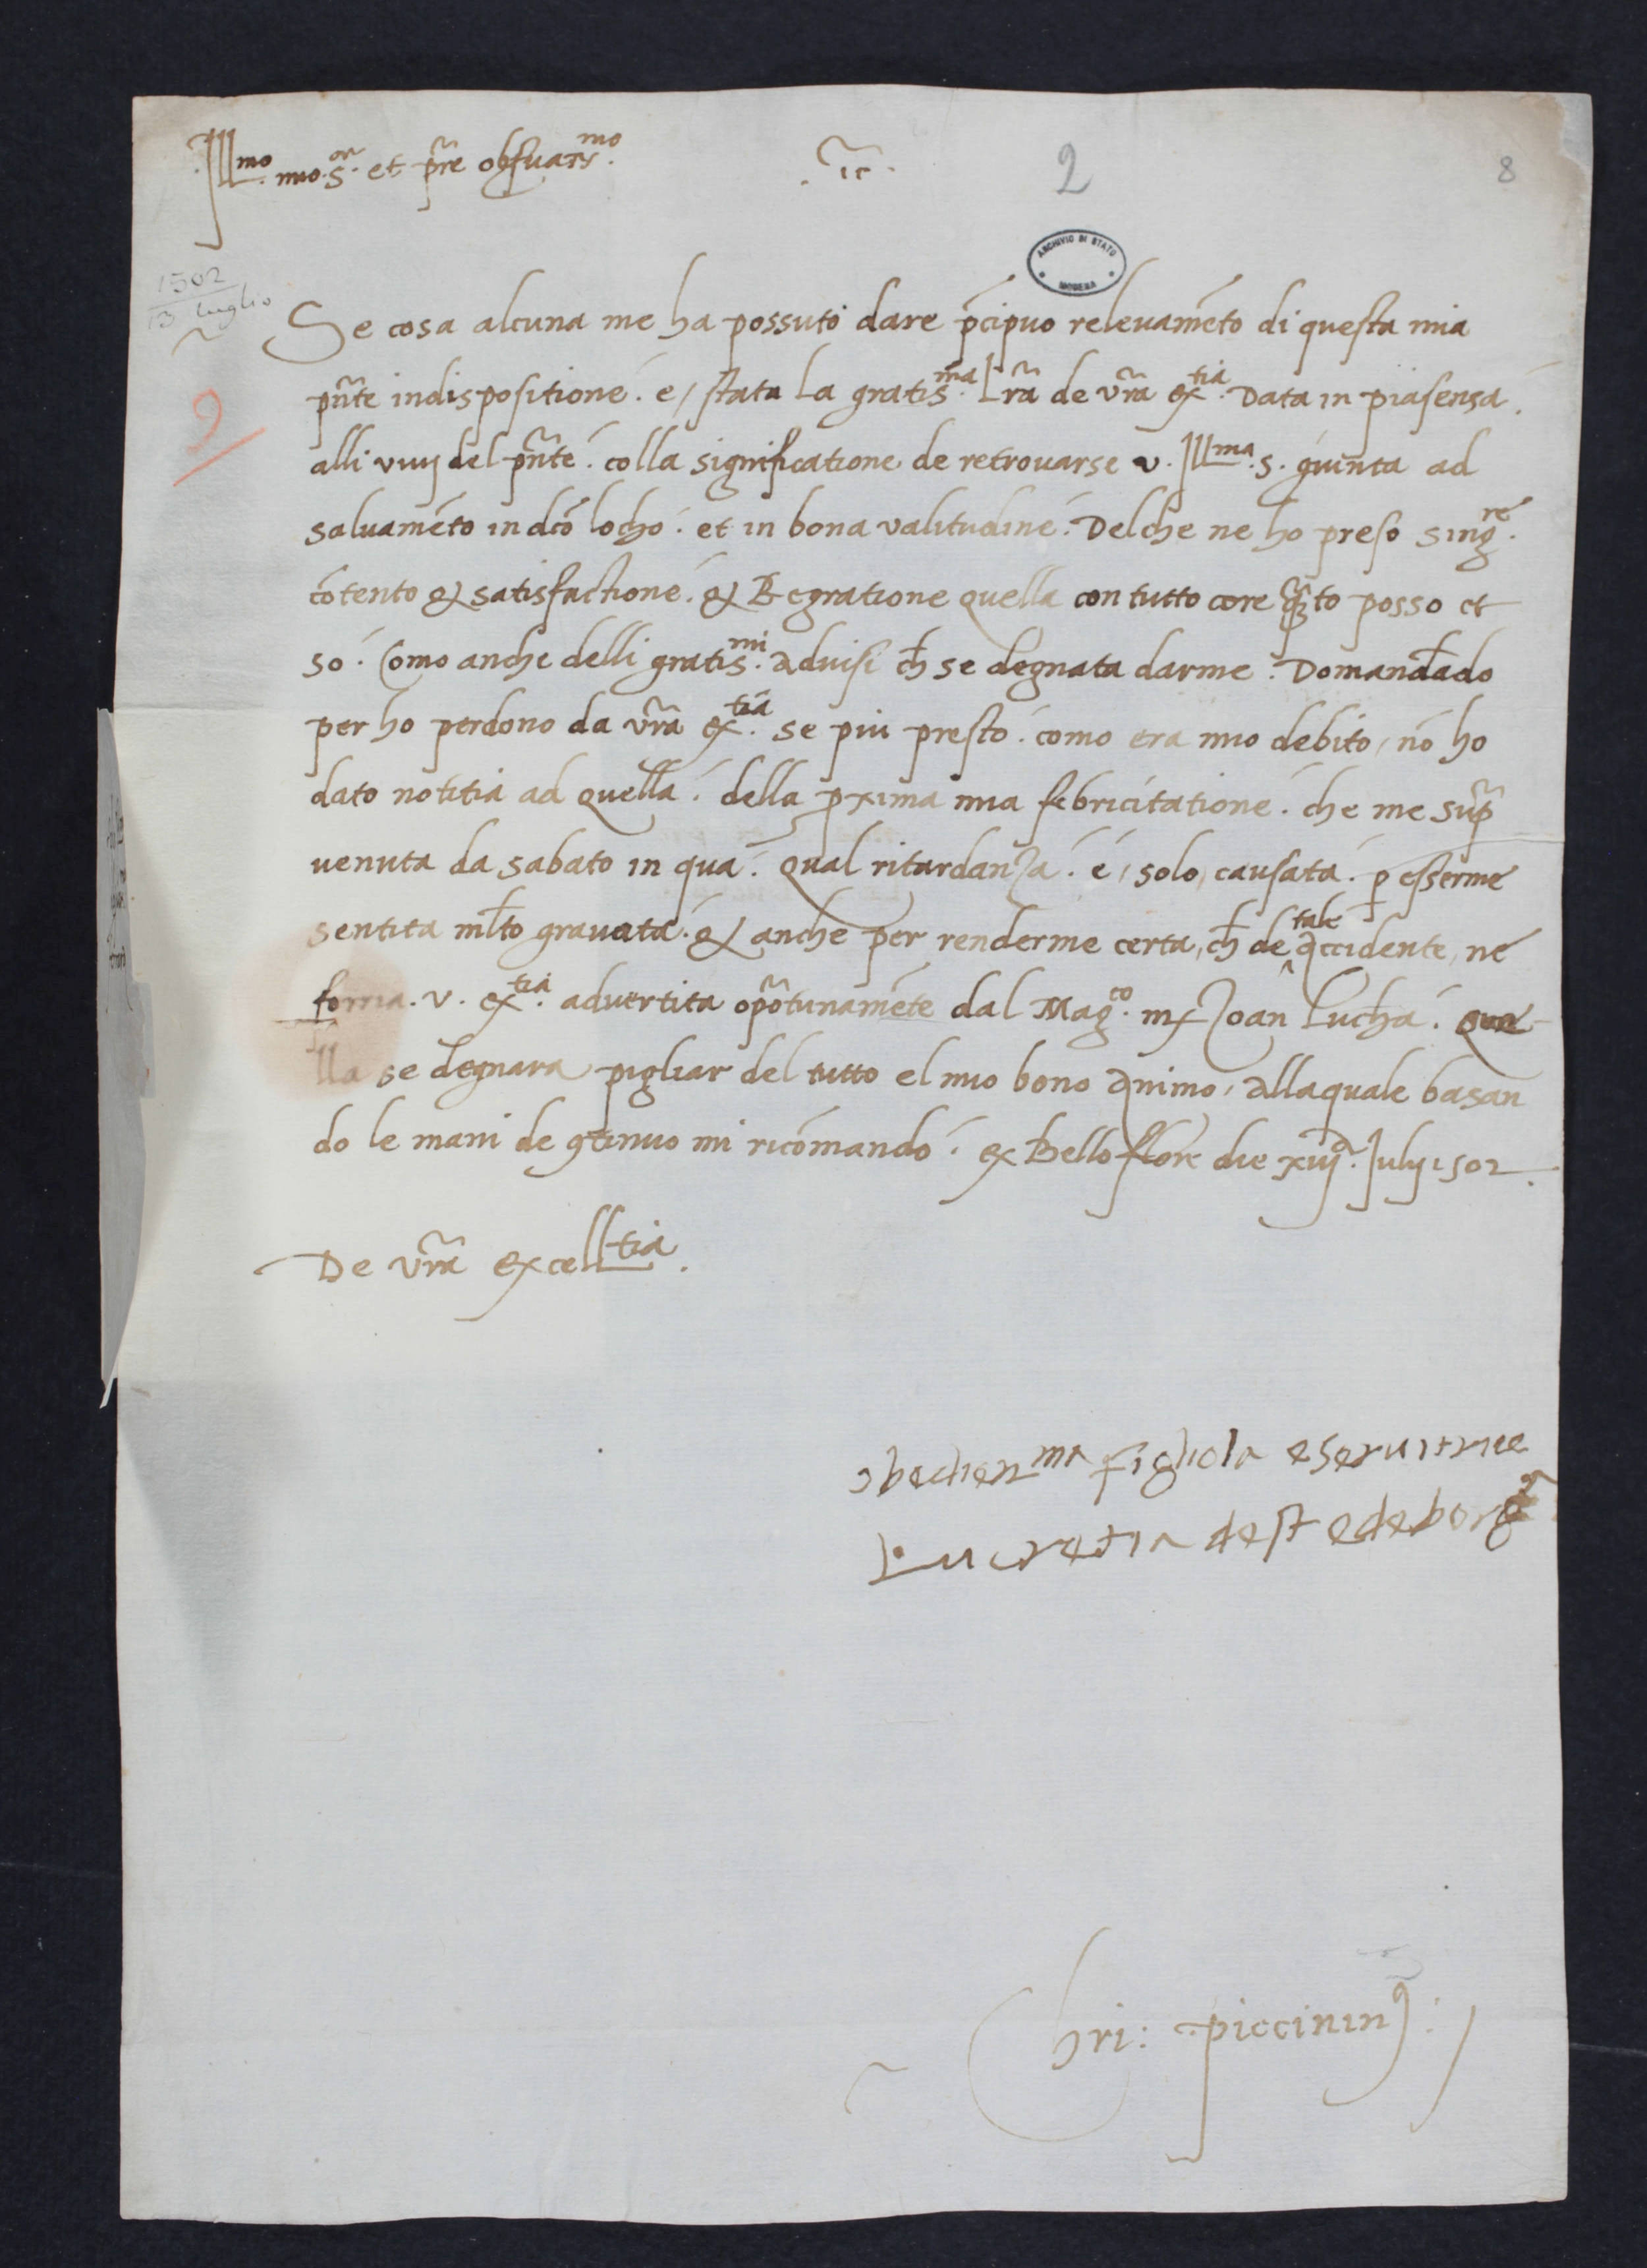 Ill.mo mio s.or et pr̃e obs̃uan̄s.mo
.ir̃.
2
8
ARCHIVIO DI STATO
MODENA
1502
13 luglio
Se cosa alcuna me ha possuto dare p̄cipuo releuamēto di questa mia
9
pñte indispositione. e, stata la gratis.ma Lr̃a de vr̃a ex.tia Data in piasensa.
alli viiij del pñte. colla significatione de retrouarse v. Ill.ma s. giunta ad
saluamēto in dc̄o locho. et in bona valitudine. Delche ne ho preso sing.re
cōtento & satisfactione. & Regratione quella con tutto core q̃to posso et
so. Como anche delli gratis.mi aduisi ch̄ se degnata darme. Domandādo
per ho perdono da vr̃a ex.tia se piu presto. como era mio debito, nō ho
dato notitia ad quella. della pxima mia febricitatione. che me sup̃
uenuta da sabato in qua. Qual ritardanza. e, solo, causata. p esserme
sentita ml̄to grauata. & anche per renderme certa, ch̄ de tale accidente, ne
foria. v. ex.tia aduertita op̃otunamēte dal Mag.co mʃ Joan Lucha. Que
lla se degnara pigliar del tutto el mio bono animo, allaquale basan
do le mani de 9tinuo mi ricōmando. ex Belloflore die xiij.a Julij 1502.
De vr̃a excell.tia.
obedien.ma figliola e seruitrice
Lucretia deste de borg.a
Chri: piccinin9: